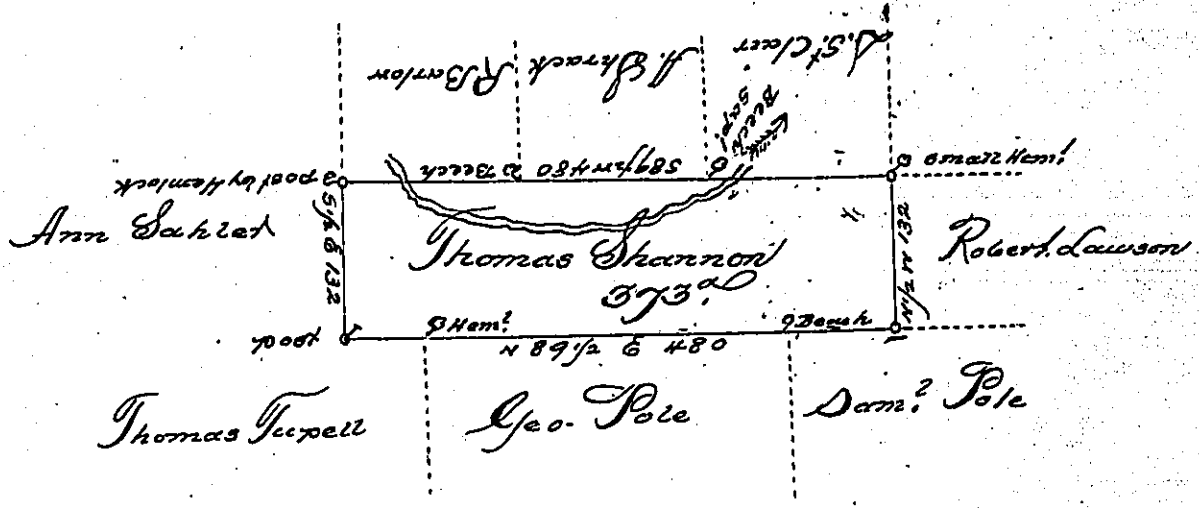 R Barlow
A. Shrack
A. St. Clair
Beech
Sap!
a post by Hemlock
S 89½ W 480 D Beech
small Hem!
Ann Sahler
S ½ E 132
Thomas Shannon
N ½ W 132
Robert Lawson
373
post
Hem?
N 89½ E 480
Beach
Thomas Tupell
Geo. Pole
Sam? Pole